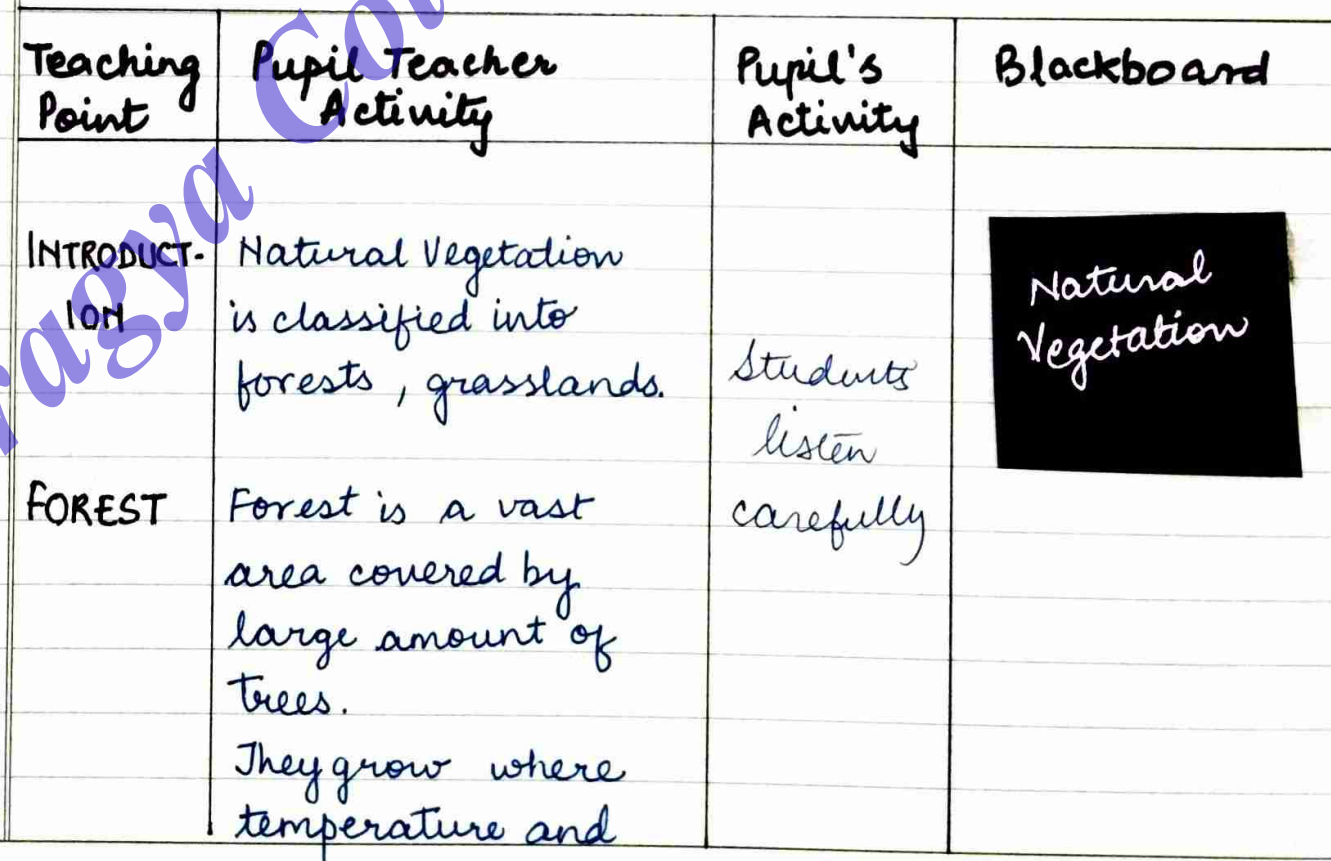 Teaching Point
Pupil Teacher Activity
Pupil's Activity
Blackboard
INTRODUCT-
ION
Natural Vegetation
is classified into
forests, grasslands.
Students
listen
carefully
Natural
Vegetation
FOREST
Forest is a vast
area covered by
large amount of
trees.
They grow where
temperature and